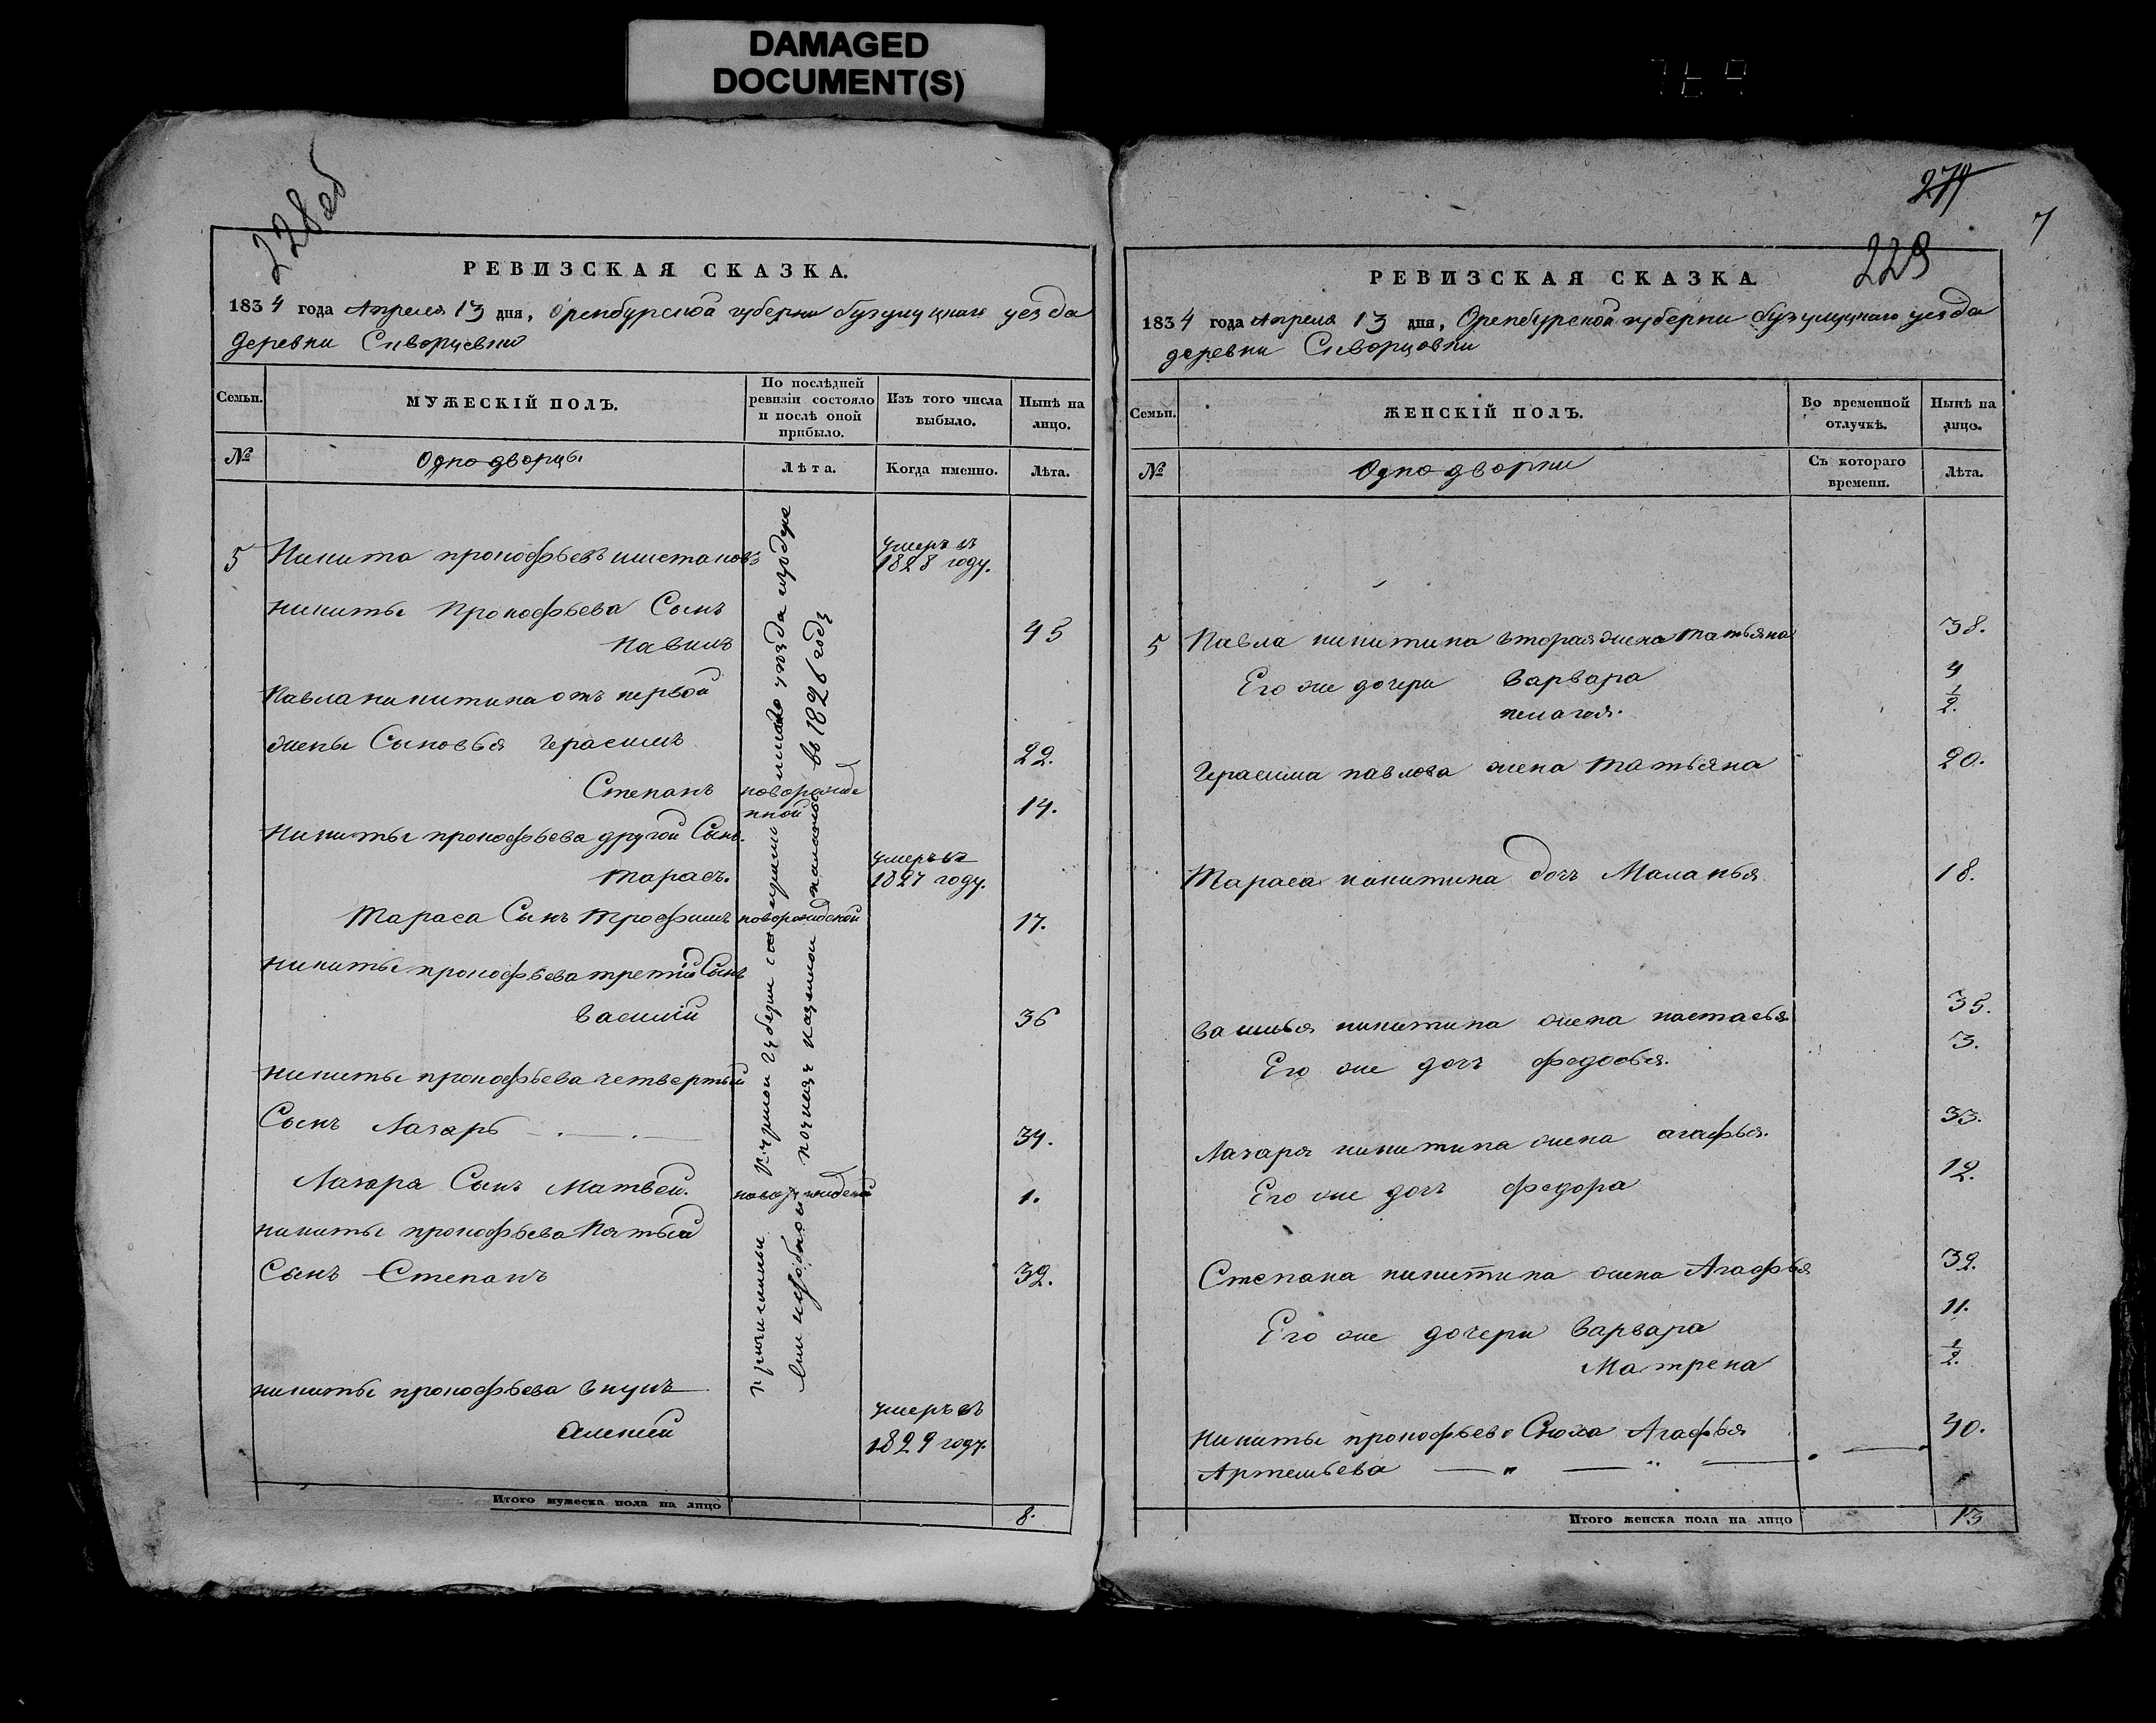 DAMAGED
DOCUMENT(S)
228 об
РЕВИЗСКАЯ СКАЗКА.
1834 года Апреля 13 дня, Оренбургской губерни бузулуцкаго уезда
деревни Скворцевки
Семьи.
МУЖЕСКІЙ ПОЛЪ.
По послѣдней
ревизіи состояло
и послѣ оной
прибыло.
Изъ того числа
выбыло.
Нынѣ на
лицо.
№
Однодворцы
Лѣта.
Когда именно.
Лѣта.
5 Никита прокофьевъ умеръ въ
1828 году.
никиты Прокофьева Сынъ
Павилъ 45
Павла никитина отъ первой
жены Сыновья Герасимъ 22.
Степанъ новорожде
нной 14.
Никиты прокофьева другой Сынъ.
Тарасъ. умеръ въ
1827 году.
Тараса Сынъ Трофимъ новорожденой 17.
никиты прокофьева третий Сынъ
Василий 36
никиты прокофьева четвертый
Сынъ Лазарь 34.
Лазаря Сынъ Матвей. новорожденой 1.
никиты прокофьева Пятый
Сынъ Степанъ 32.
никиты прокофьева внукъ
Алексей умеръ въ
1829 году.
причисленные губерни уезда
в 1826 годе
Итого мужеска пола на лицо 8.
274
7
229
РЕВИЗСКАЯ СКАЗКА.
1834 года Апреля 13 дня, Оренбургской губерни бузулуцкаго уезда
деревни Скворцовки
Семьи.
ЖЕНСКІЙ ПОЛЪ.
Во временной
отлучкѣ.
Нынѣ на
лицо.
№
Однодворки
Съ котораго
времени.
Лѣта.
5 Павла никитина вторая жена татьяна 38.
Его же дочери Варвара 4
пелагея. 1/2.
Герасима павлова жена татьяна 20.
Тараса никитина дочь Маланья 18.
Василья никитина жена настасья 35.
Его же дочь федосья. 3.
Лазаря никитина жена агафья. 33.
Его же дочь федора 12.
Степана никитина жена Агафья 32.
Его же дочери Варвара 11.
Матрена 1/2.
Никиты прокофьева Сноха Агафья 40.
Артемьева
Итого женска пола на лицо 13